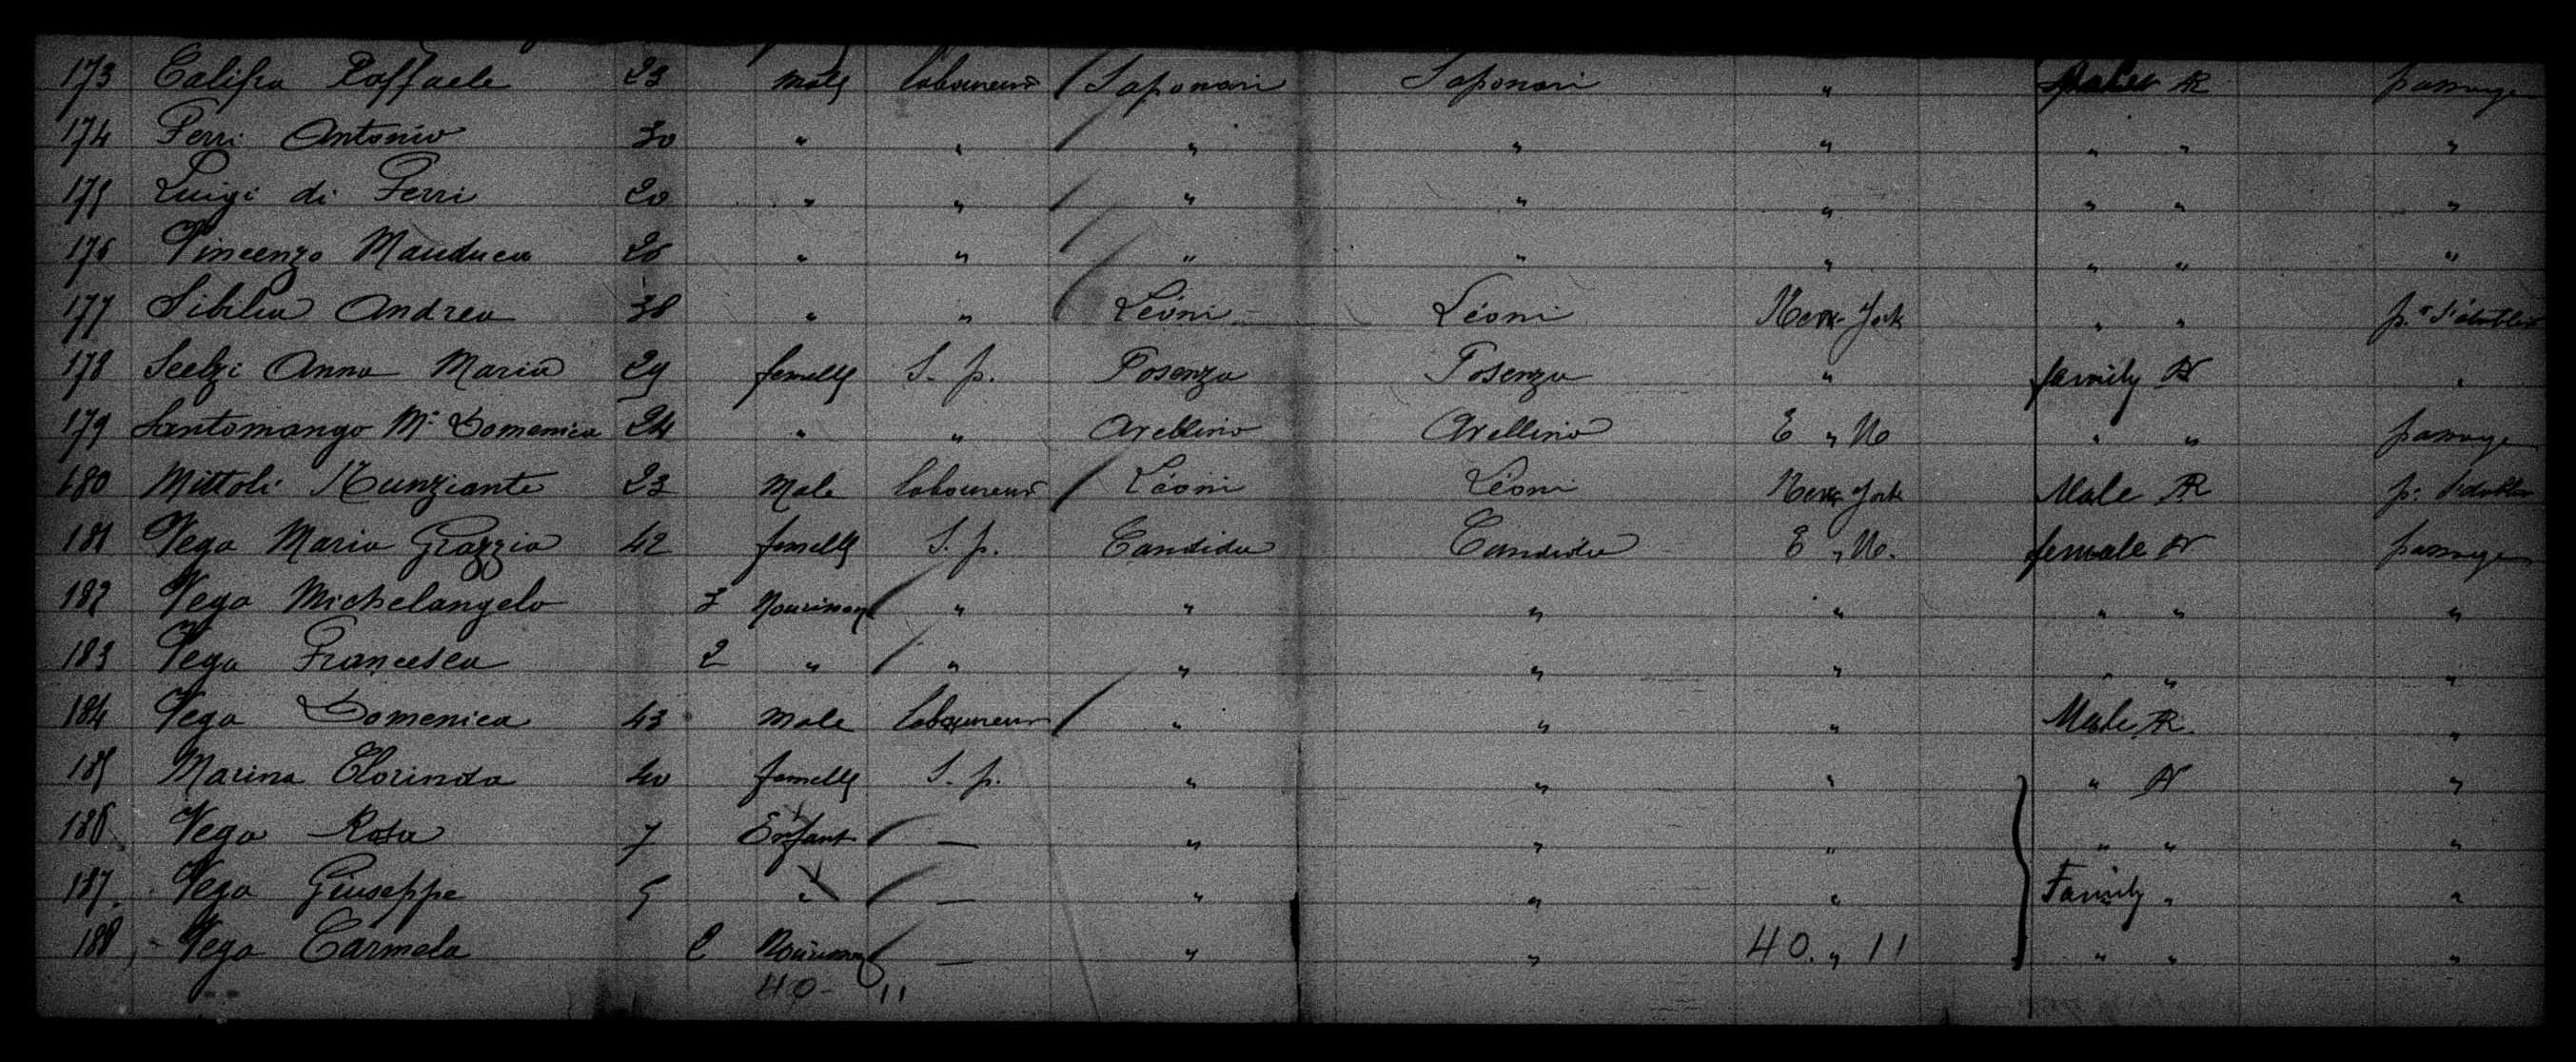 173 Raffaele 23 Male laboureur Saponari Saponari " AR passage
174 Ferri Antonio 30 " " " " " " " "
175 Luigi di Ferri 20 " " " " " " " "
176 Vincenzo Manduca " " " " " " " "
177 Sibilia Andrea 38 " " Léoni Léoni New-York " "
178 Anna Maria 29 femelle S. p. Posenza Posenza " family "
179 Santomango Ma Domenica 24 " " Avellino Avellino E " No " " passage
180 Mittoli Nunziante 23 Male laboureur Léoni Léoni New York Male AR
181 Vega Maria Grazzia 42 femelle S. p. Candida Candida E " No. female passage
182 Vega Michelangelo 3 " " " " " " "
183 Vega Francesca 2 " " " " " " " "
184 Vega Domenica 43 Male laboureur " " " Male AR. "
185 Marina Clorinda 40 femelle S. p. " " " " "
186 Vega Rosa 7 Enfant — " " " " " "
187. Vega Giuseppe 5 " — " " " Family " "
188 Vega Carmela — " " 40. " 11 " " "
40 - 11